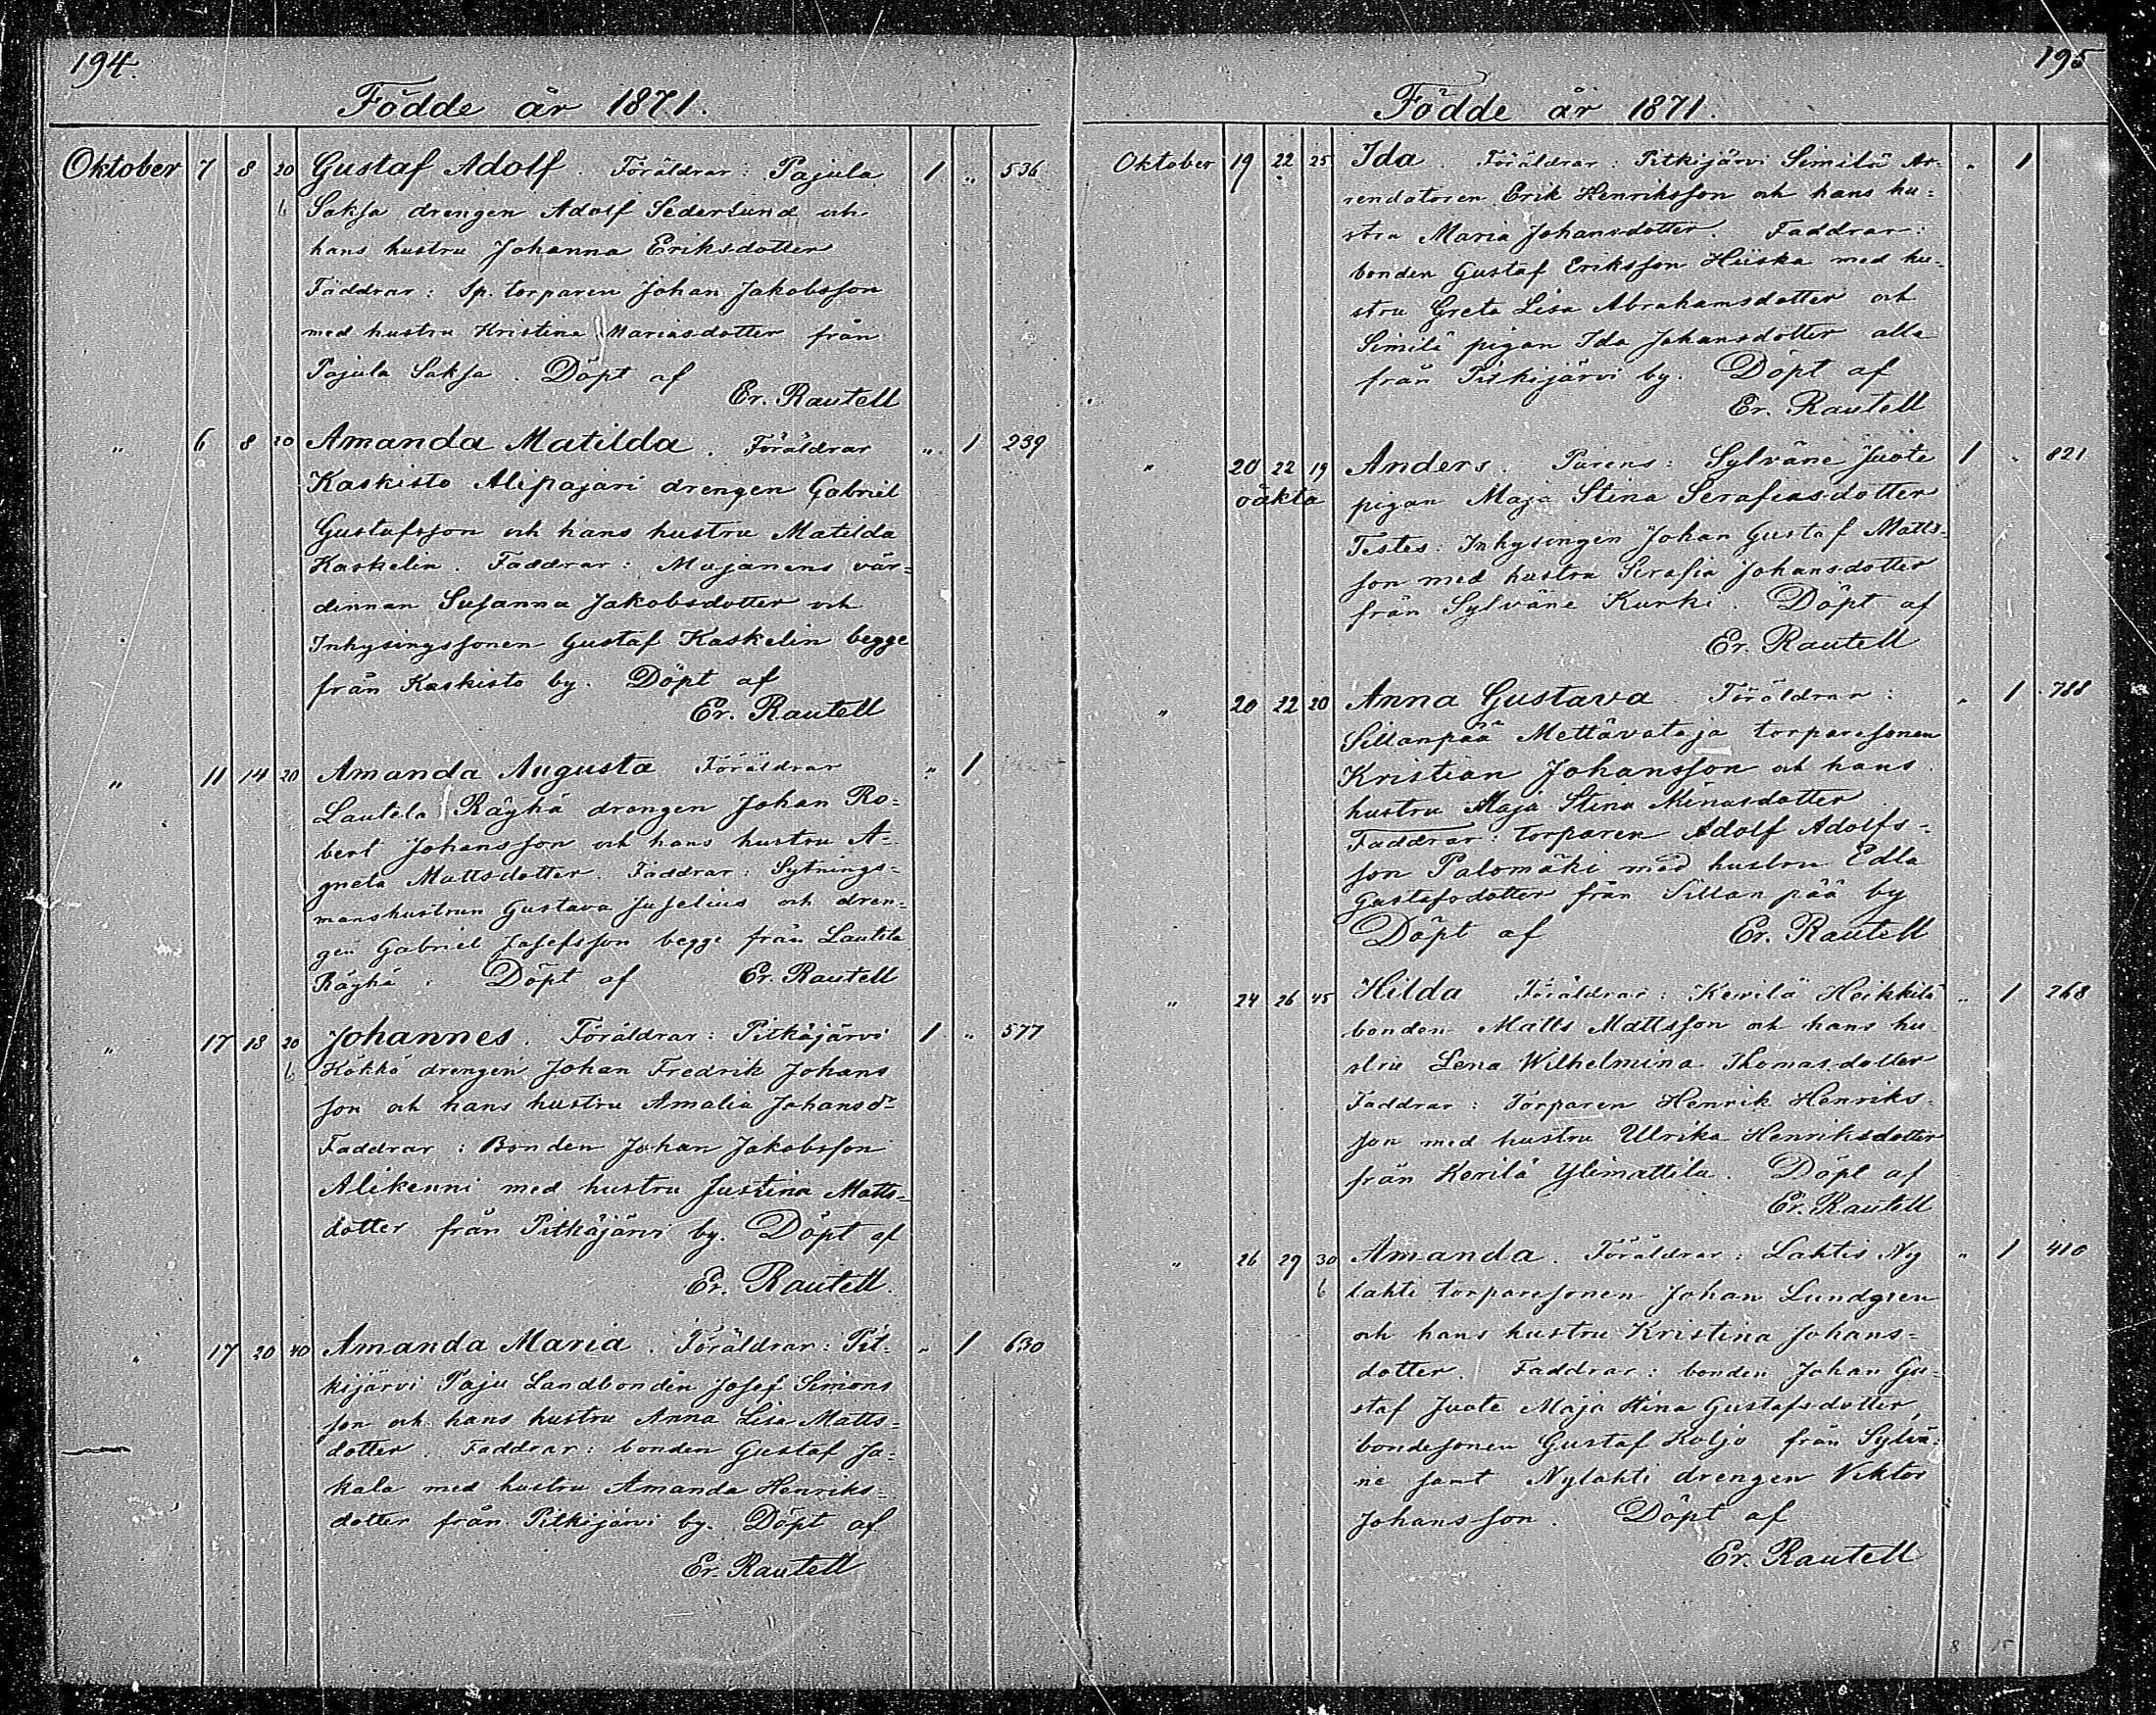 194.
Födde år 1871.
Oktober 7 8 20 Gustaf Adolf. Föräldrar: Pajula 1 „ 536
6 Saksa drengen Adolf Sederlund och
hans hustru Johanna Eriksdotter
Faddrar: Sp. torparen Johan Jakobsson
med hustru Kristina Mariasdotter från
Pajula Saksa. Döpt af
Er. Rautell
„ 6 8 20 Amanda Matilda. Föräldrar „ 1 239
Kaskisto Alipajari drengen Gabriel
Gustafsson och hans hustru Matilda
Kaskelin. Faddrar: Mujanens vär=
dinnan Susanna Jakobsdotter och
Inhysingssonen Gustaf Kaskelin begge
från Kaskisto by. Döpt af
Er. Rautell
„ 11 14 20 Amanda Augusta Föräldrar „ 1
Lautela Räyhä drengen Johan Ro=
bert Johansson och hans hustru A=
gneta Mattsdotter. Faddrar: Sytnings=
manshustrun Gustava Juselius och dren=
gen Gabriel Josefsson begge från Lautela
Räyhä. Döpt af Er. Rautell
„ 17 18 20 Johannes. Föräldrar: Pitkäjärvi 1 „ 577
6 Kökkö drengen Johan Fredrik Johans
son och hans hustru Amalia Johansdr
Faddrar: Bonden Johan Jakobsson
Alikenni med hustru Justina Matts=
dotter från Pitkäjärvi by. Döpt af
Er. Rautell.
„ 17 20 40 Amanda Maria. Föräldrar: Pit= „ 1 630
kijärvi Paju Landbonden Josef Simons
son och hans hustru Anna Lisa Matts=
dotter. Faddrar: bonden Gustaf Ja=
kala med hustru Amanda Henriks=
dotter från Pitkijärvi by. Döpt af
Er. Rautell
195
Födde år 1871.
Oktober 19 22 25 Ida. Föräldrar: Pitkijärvi Similä Ar= „ 1
rendatoren Erik Henriksson och hans hu=
stru Maria Johansdotter. Faddrar:
bonden Gustaf Eriksson Hiiska med hu=
stru Greta Lisa Abrahamsdotter och
Similä pigan Ida Johansdotter alla
från Pitkijärvi by. Döpt af
Er. Rautell
„ 20 22 19 Anders. Parens: Sylväne Juote 1 „ 821
oäkta pigan Maja Stina Serafiasdotter
Testes: Inhysingen Johan Gustaf Matts=
son med hustru Serafia Johansdotter
från Sylväne Kurki. Döpt af
Er. Rautell
„ 20 22 20 Anna Gustava Föräldrar: „ 1 788
Sillanpää Mettävataja torparesonen
Kristian Johansson och hans
hustru Maja Stina Minasdotter
Faddrar: torparen Adolf Adolfs=
son Palomäki med hustru Edla
Gustafsdotter från Sillanpää by
Döpt af Er. Rautell
„ 24 26 45 Hilda Föräldrar: Kerilä Heikkilä „ 1 268
bonden Matts Mattsson och hans hu
stru Lena Wilhelmina Thomasdotter
Faddrar: Torparen Henrik Henriks=
son med hustru Ulrika Henriksdotter
från Kerilä Ylimattila. Döpt af
Er. Rautell
„ 26 29 30 Amanda. Föräldrar: Lahtis Ny „ 1 410
6 lahti torparesonen Johan Lundgren
och hans hustru Kristina Johans=
dotter. Faddrar: bonden Johan Gu=
staf Juote Maja Stina Gustafsdotter,
bondesonen Gustaf Koljo från Sylvä=
ne samt Nylahti drengen Viktor
Johansson. Döpt af
Er. Rautell
8 15